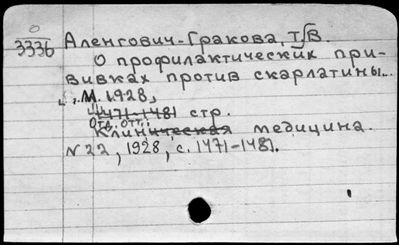 0
3336 Аленгович-Гракова, Т.В.
О профилактических при-
вивках против скарлатины.
М. 1928,
1471-1481 стр.
Отд. отт.:
Клиническая медицина.
N 22, 1928, с. 1471-1481.